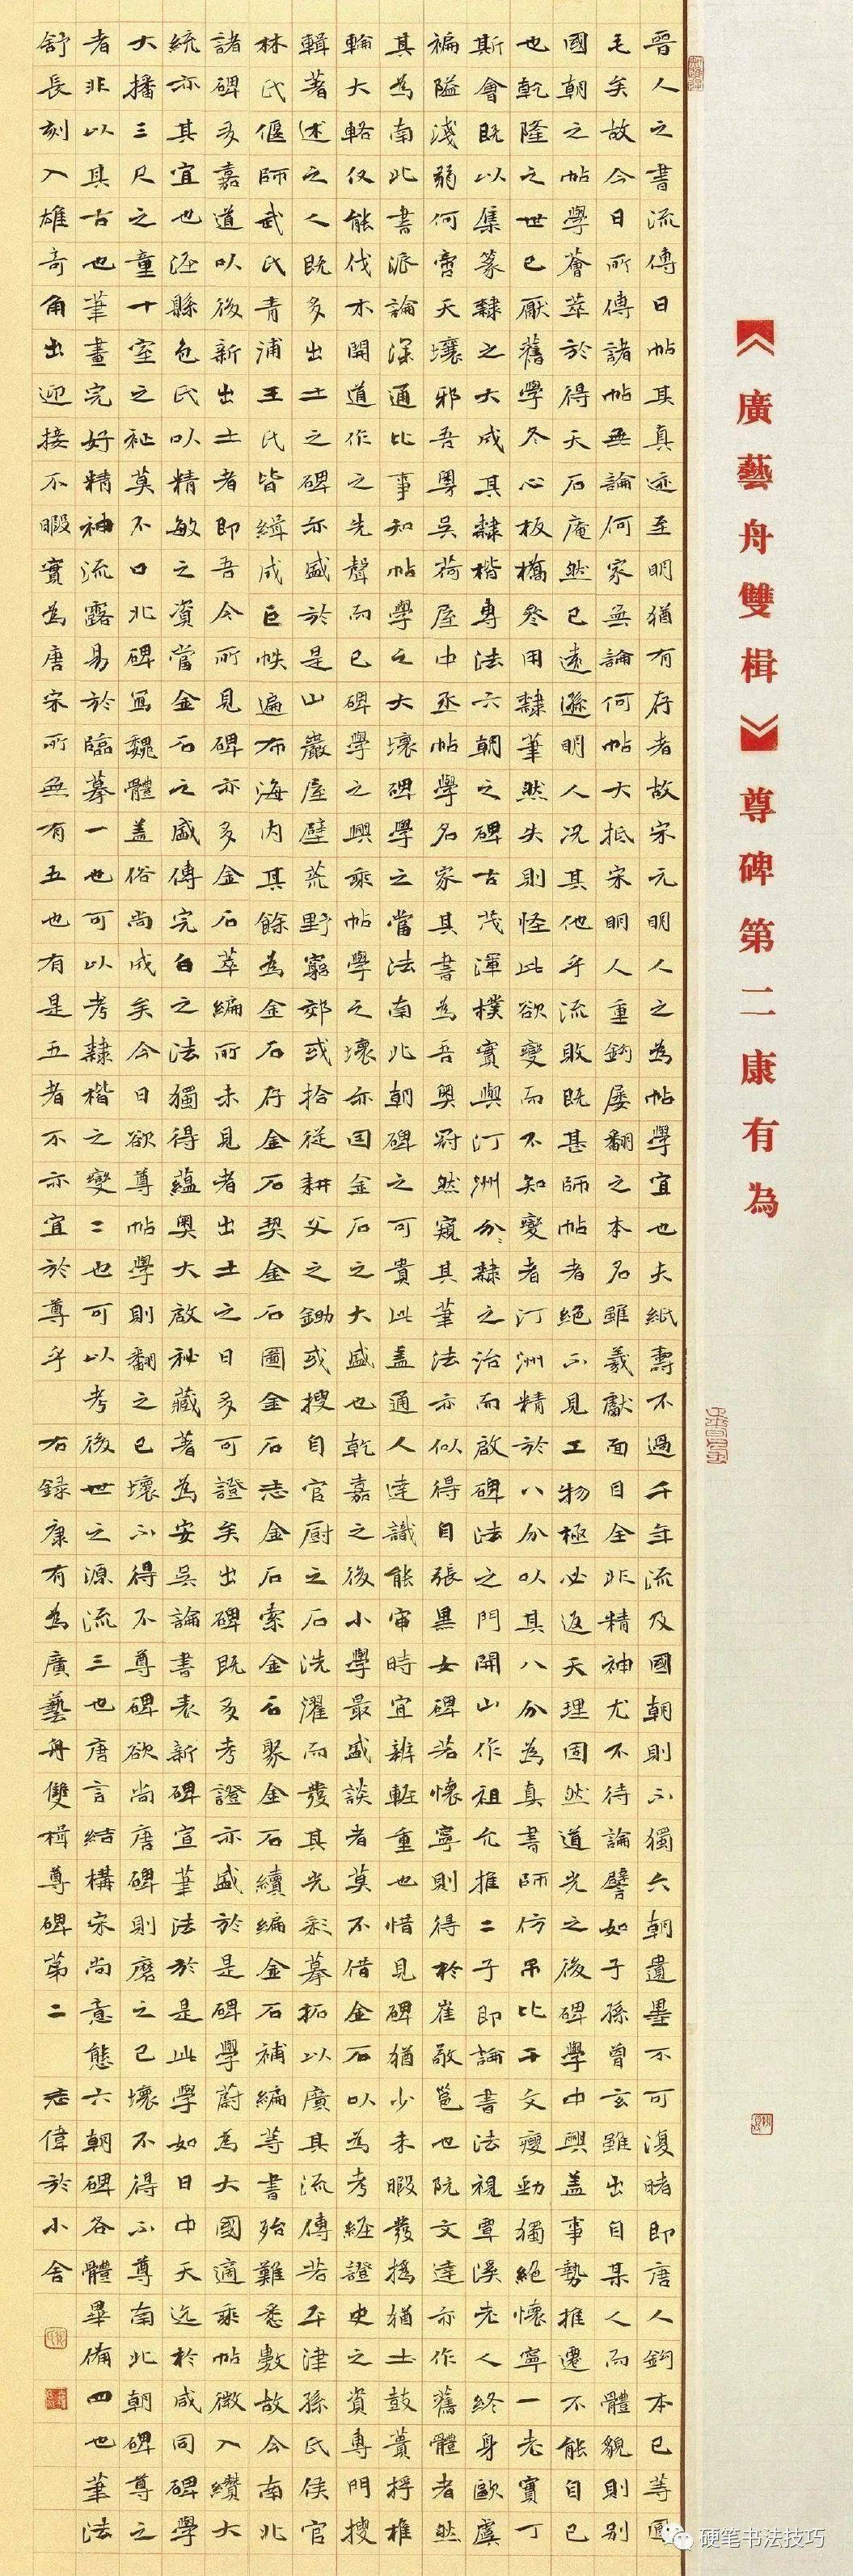 《廣藝舟雙楫》尊碑第二康有為
晉人之書流傳日帖其真迹至明猶有存者故宋元明人之為帖學宜也夫紙壽不過千年流及國朝則不獨六朝遺墨不可復睹即唐人鉤本已等鳳
毛矣故今日所傳諸帖無論何家無論何帖大抵宋明人重鉤屢翻之本名雖羲獻面目全非精神尤不待論譬如子孫曾玄雖出自某人而體貌則別
國朝之帖學薈萃於得天石庵然已遠遜明人況其他乎流敗既甚師帖者絕不見工物極必返天理固然道光之後碑學中興蓋事勢推遷不能自已
也乾隆之世已厭舊學冬心板橋參用隸筆然失則怪此欲變而不知變者汀洲精於八分以其八分為真書師仿吊比干文瘦勁獨絕懷寧一老實丁
斯會既以集篆隸之大成其隸楷專法六朝之碑古茂渾樸實與汀洲分隸之治而啟碑法之門開山作祖允推二子即論書法視覃溪老人終身歐虞
褊隘淺弱何啻天壤邪吾粵吳荷屋中丞帖學名家其書為吾粵冠然窺其筆法亦似得自張黑女碑若懷寧則得於崔敬邕也阮文達亦作舊體者然
其為南北書派論深通此事知帖學之大壞碑學之當法南北朝碑之可貴此蓋通人達識能審時宜辨輕重也惜見碑猶少未暇發撝猶土鼓蕢桴椎
輪大輅仅能伐木開道作之先聲而已碑學之興乘帖學之壞亦因金石之大盛也乾嘉之後小學最盛談者莫不借金石以為考經證史之資專門搜
輯著述之人既多出土之碑亦盛於是山巖屋壁荒野窮郊或拾從耕父之鋤或搜自官厨之石洗濯而發其光彩摹拓以廣其流傳若平津孫氏侯官
林氏偃師武氏青浦王氏皆緝成巨帙遍布海內其餘為金石存金石契金石圖金石志金石索金石聚金石續編金石補編等書殆難悉數故今南北
諸碑多嘉道以後新出土者即吾今所見碑亦多金石萃編所未見者出土之日多可證矣出碑既多考證亦盛於是碑學蔚為大國適乘帖微入纘大
統亦其宜也涇縣包氏以精敏之資當金石之盛傳完白之法獨得蘊奧大啟秘藏著為安吳論書表新碑宣筆法於是此學如日中天迄於咸同碑學
大播三尺之童十室之社莫不口北碑寫魏體蓋俗尚成矣今日欲尊帖學則翻之已壞不得不尊碑欲尚唐碑則磨之已壞不得不尊南北朝碑尊之
者非以其古也筆畫完好精神流露易於臨摹一也可以考隸楷之變二也可以考後世之源流三也唐言結構宋尚意態六朝碑各體畢備四也筆法
舒長刻入雄奇角出迎接不暇實為唐宋所無有五也有是五者不亦宜於尊乎 右錄康有為廣藝舟雙楫尊碑第二 志偉於小舍
硬笔书法技巧